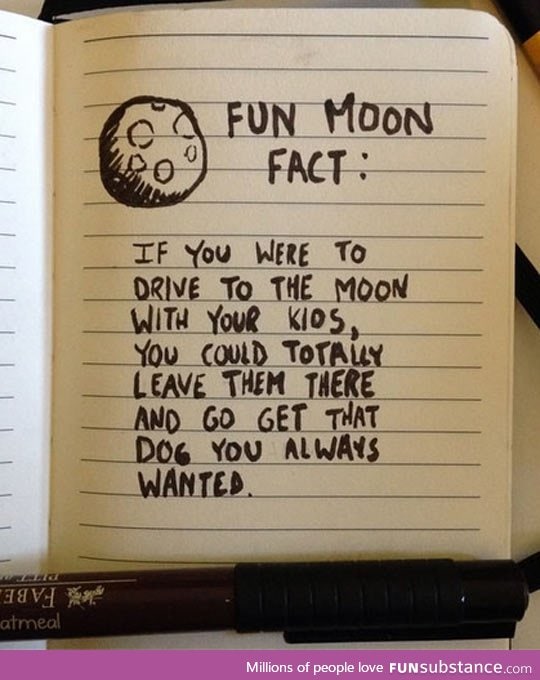 FUN MOON
FACT:
IF YOU WERE TO
DRIVE TO THE MOON
WITH YOUR KIDS,
YOU COULD TOTALLY
LEAVE THEM THERE
AND GO GET THAT
DOG YOU ALWAYS
WANTED.
FABE
atmeal
Millions of people love FUNsubstance.com